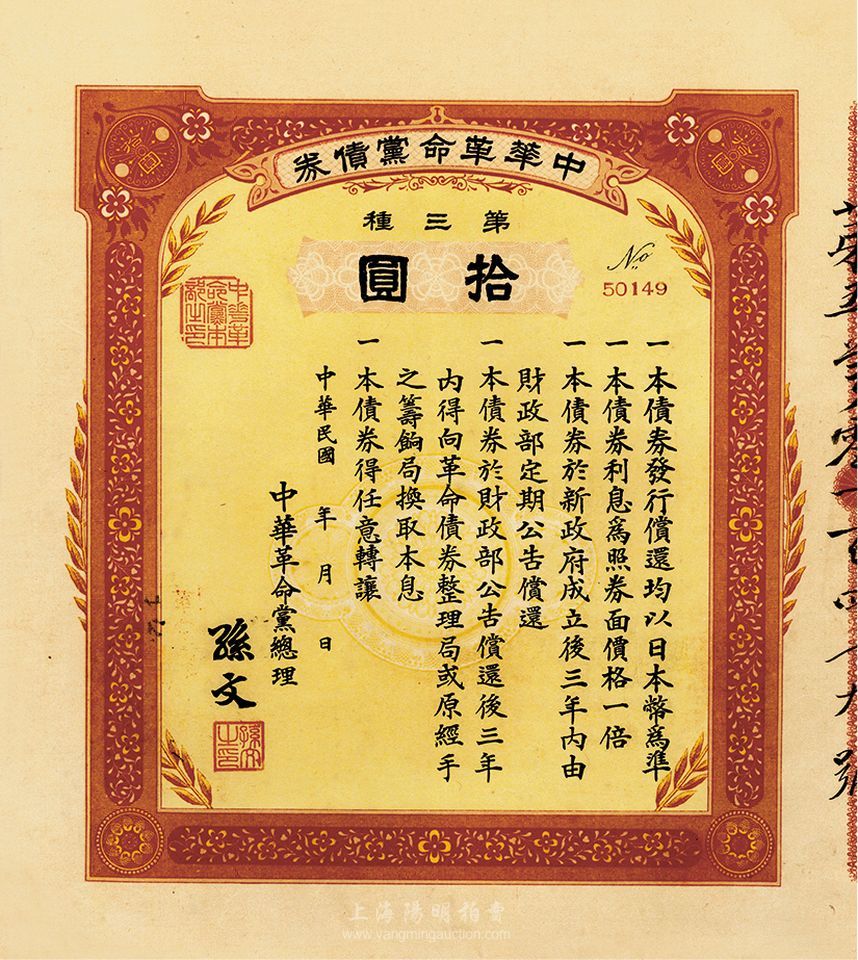 中華革命黨債券
第三種
拾圓
No
50149
一本債券發行償還均以日本幣爲準
一本債券利息爲照券面價格一倍
一本債券於新政府成立後三年內由
財政部定期公告償還
一本債券於財政部公告償還後三年
內得向革命債券整理局或原經手
之籌餉局換取本息
一本債券得任意轉讓
中華民國 年 月 日
中華革命黨總理
孫文
孫文之印
中華革命黨本部之印
上海陽明拍賣
www.yangmingauction.com